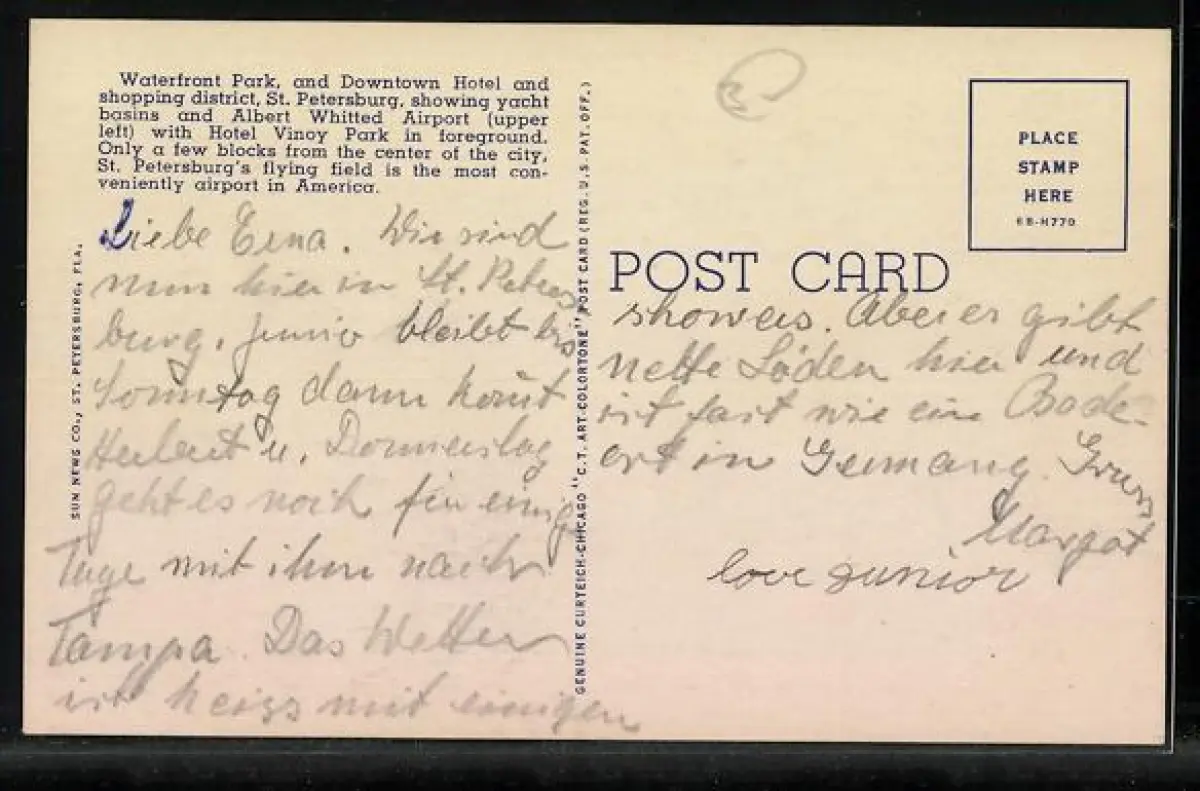 Waterfront Park, and Downtown Hotel and
shopping district, St. Petersburg, showing yacht
basins and Albert Whitted Airport (upper
left) with Hotel Vinoy Park in foreground.
Only a few blocks from the center of the city,
St. Petersburg's flying field is the most con-
veniently airport in America.
Liebe Erna. Wir sind
nun hier in St. Peters
burg. Junior bleibt bis
Sonntag dann kom̄t
Herbert u. Donnerstag
geht es noch für einig
Tage mit ihm nach
Tampa. Das Wetter
ist heiss mit einigen
SUN NEWS CO., ST. PETERSBURG, FLA.
GENUINE CURTEICH-CHICAGO "C.T. ART-COLORTONE" POST CARD (REG. U.S. PAT. OFF.)
PLACE
STAMP
HERE
6B-H770
POST CARD
showers. Aber er gibt
nette Läden hier und
ist fast wie ein Bade-
ort in Germany. Gruss
Margot
love junior